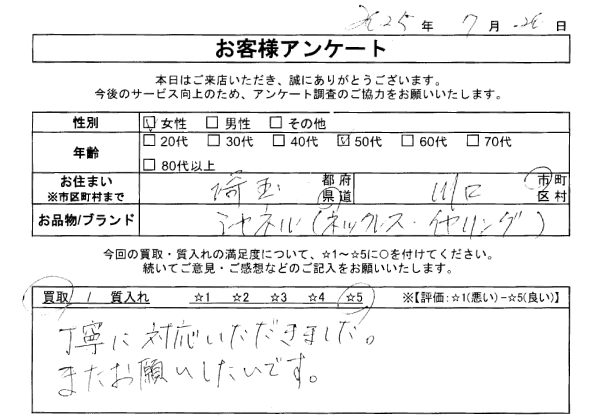 2025年7月26日
お客様アンケート
本日はご来店いただき、誠にありがとうございます。
今後のサービス向上のため、アンケート調査のご協力をお願いいたします。
性別 ☑女性 □男性 □その他
年齢 □20代 □30代 □40代 ☑50代 □60代 □70代
□80代以上
お住まい 埼玉 都府県道 川口 市町区村
※市区町村まで
お品物/ブランド シャネル(ネックレス・イヤリング)
今回の買取・質入れの満足度について、☆1~☆5に○を付けてください。
続いてご意見・ご感想などのご記入をお願いいたします。
買取 / 質入れ ☆1 ☆2 ☆3 ☆4 ☆5 ※【評価:☆1(悪い)-☆5(良い)】
丁寧に対応いただきました。
またお願いしたいです。